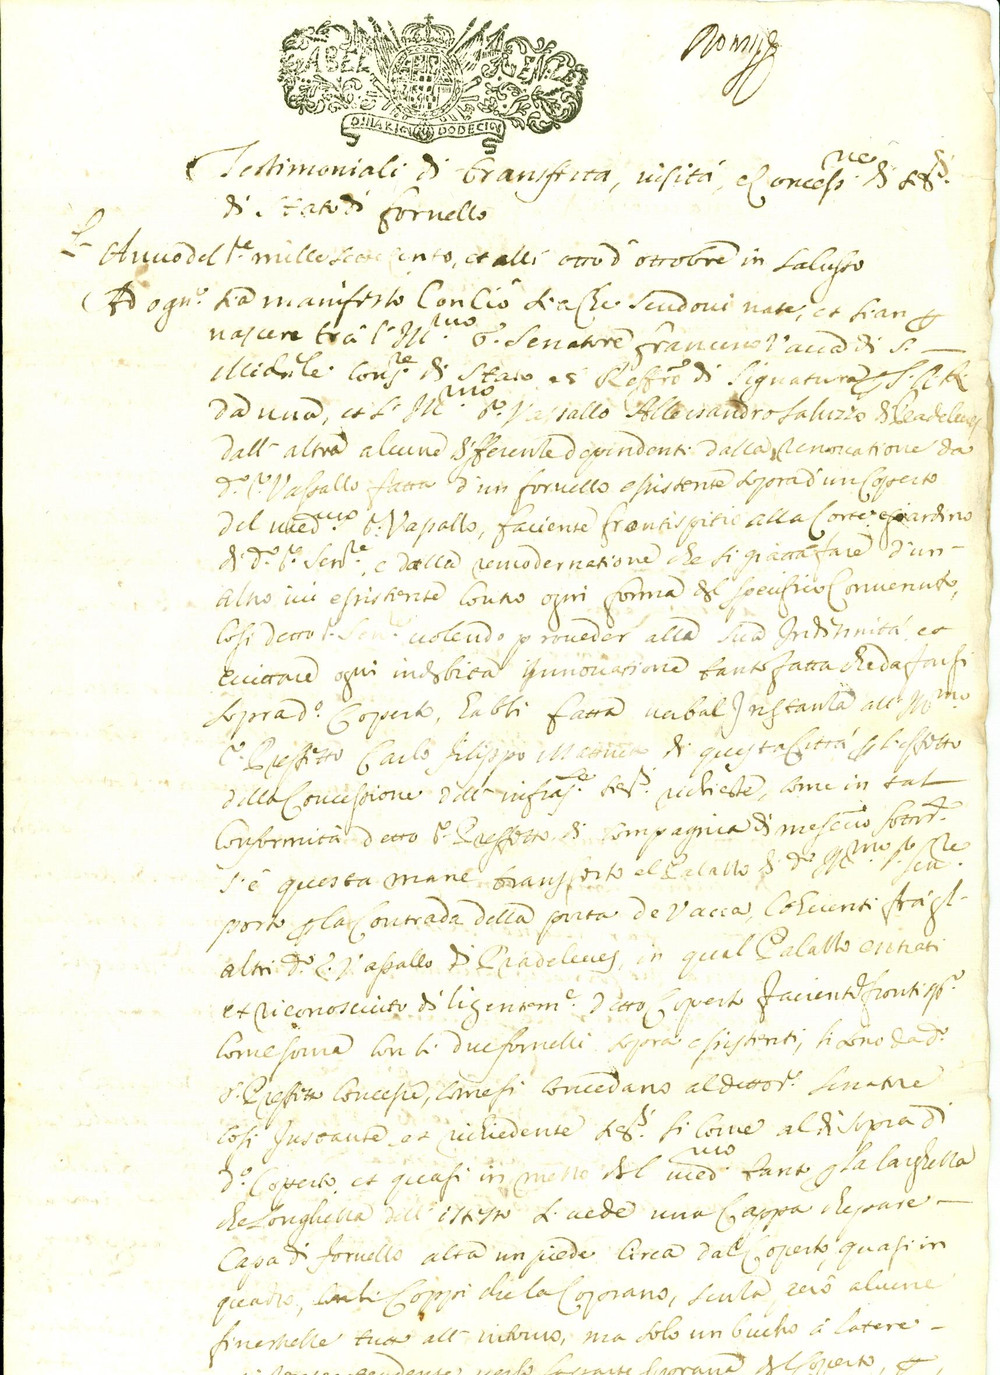 TABEL GENLE
DINARI DODECI
Testimoniali di transferta, visita, e Concess.ne di
di Stato di fornello
L' Anno del Sig.re mille seicento, et alli otto d'ottobre in Saluzzo
Ad ogn'o sia manifesto Con Ciò sia che sendovi nate, et sian p
nascere trà l'Ill.mo S.r Senatore Francesco Vacca di S.
Michele Cons.re di Stato et Reffer.o di Signatura
da una, et l'Ill.mo S.r Vassallo Allessandro Saluzzo di Pradeleves
dall' altra alcune differenze dependenti dalla renovatione da
d.o S.r Vassallo fatta d'un fornello esistente sopra d'un Coperto
del med.mo S.r Vassallo, faciente frontispitio alla Corte e giardino
di d.o S.r Sen.re, e dalla remodernatione che si pratta fare d'un
altro ivi esistente contro ogni forma del specifico Convenuto,
Cosi detto S.r Sen.re volendo proveder alla sua Indennità, et
evittare ogni indebita innovatione tanto fatta che da farsi
sopra d.o Coperto, habbi fatta verbal Instanza all' Ill.mo
S.r Prefetto Carlo Filippo di questa Città p l'effetto
della Concessione dell' infras.te richieste, come in tal
Conformità detto S.r Prefetto di compagnia di me
s'è questa mane transferto al Palazzo di d.o Ill.mo S.r Sen.re
posto p la Contrada della porta de Vacca, Coherenti frà gl'
altri d.o S.r Vassallo di Pradeleves, in qual Palazzo entrati
et riconosciuto diligentem.e detto Coperto faciente frontisp.o
come soura con li due fornelli sopra esistenti, si sono da d.o
S.r Prefetto Concesse, come si concedano al detto S.r Senatore
Cosi Instante, et richiedente si come al di sopra di
d.o Coperto, et quasi in mezzo del med.mo tanto p la larghezza
che longhezza dell' istesso si vede una Cappa che pare
Capa di fornello alta un piede Circa dal Coperto, quasi in
quadro, con li Coppi che la Coprano, senza però alcune
finestrelle tutt' all' intorno, ma solo un bucho à latere